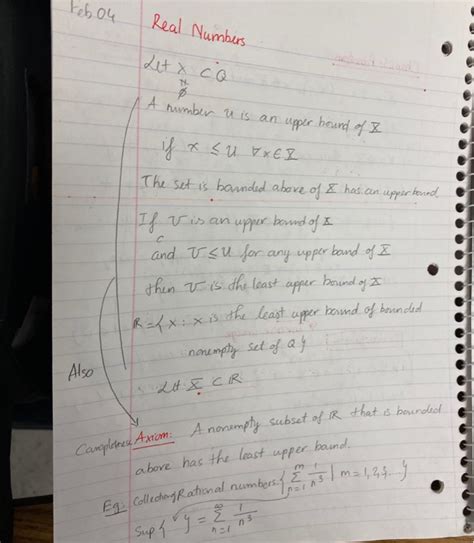 Feb 04
Real Numbers
Let X ⊂ Q
≠
∅
A number u is an upper bound of X
if x ≤ u ∀x∈X
The set is bounded above of X has an upper bound
If V is an upper bound of X
and V≤U for any upper bound of X
then V is the least upper bound of X
R={ x : x is the least upper bound of bounded
nonempty set of Q}
Also
Let X ⊂ R
Completeness Axiom: A nonempty subset of R that is bounded
above has the least upper bound.
Eg: Collecting Rational numbers: { ∑_{n=1}^{m} 1/n³ | m=1,2,3,.. }
Sup{ } = ∑_{n=1}^{∞} 1/n³